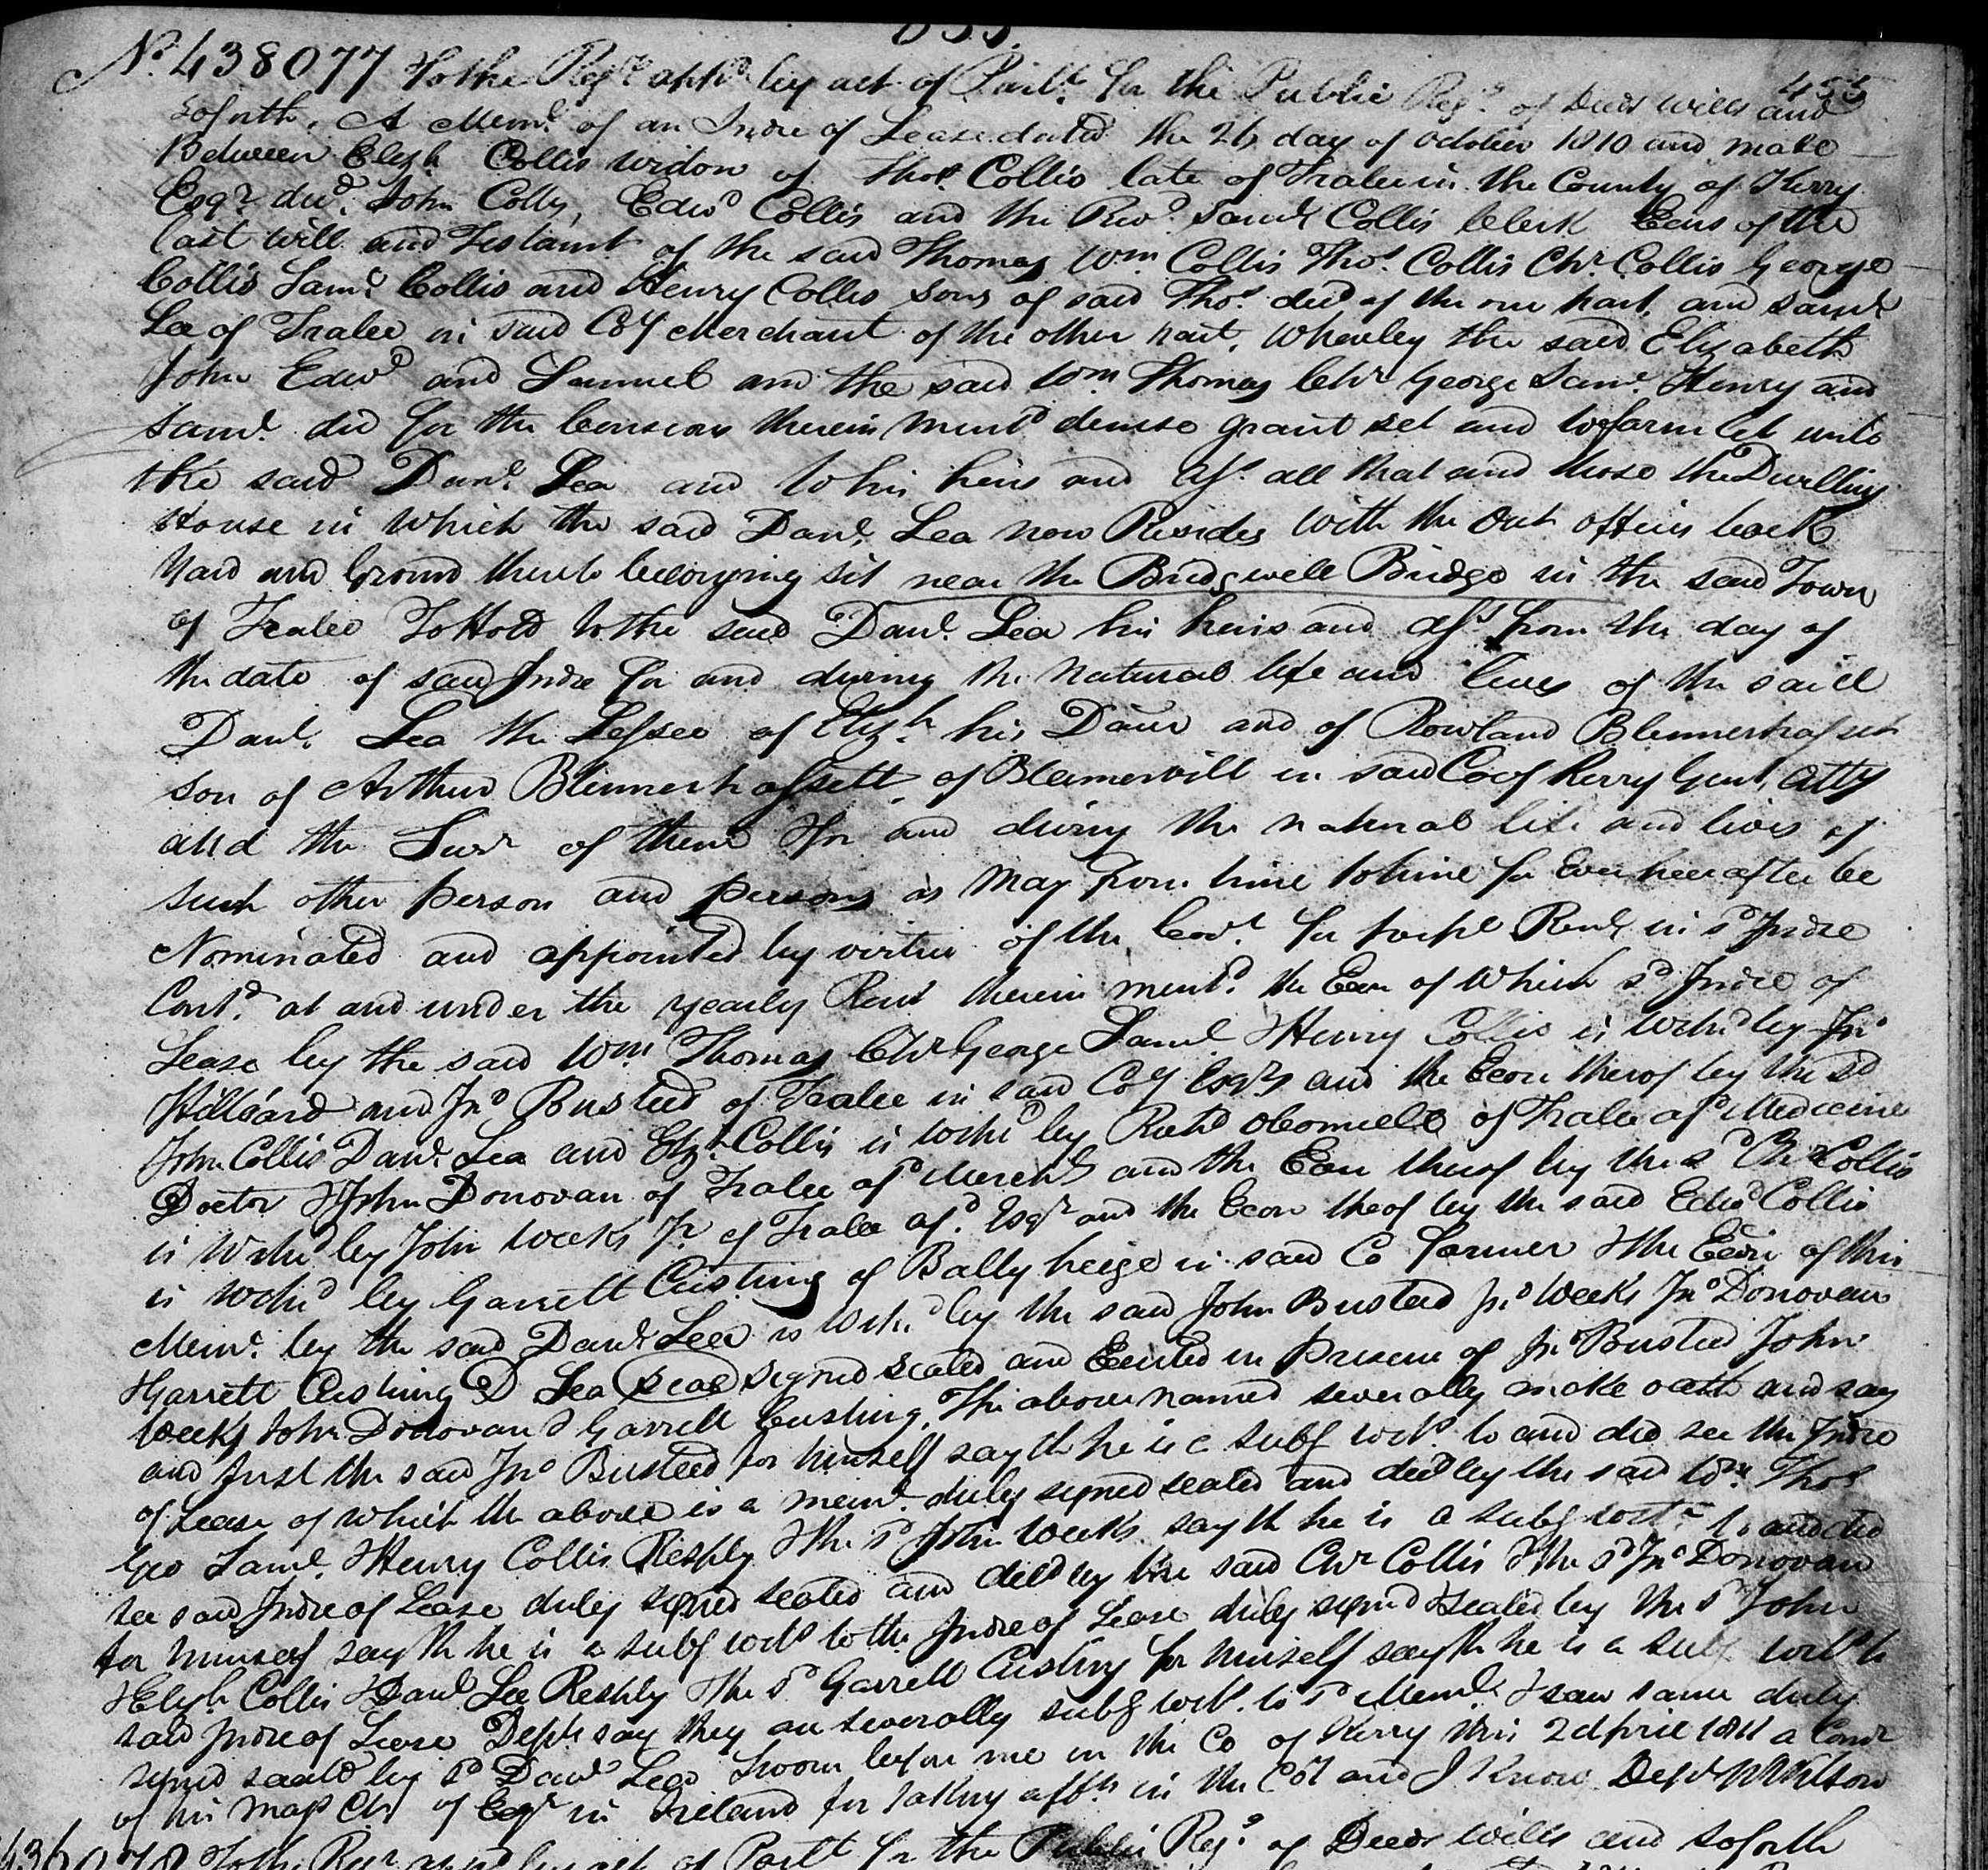 455
No. 438077 To the Regr. appd. by act of Parlt. for the Public Regg. of Deeds wills and
soforth, A Meml. of an Indre of Lease dated the 26 day of October 1810 and made
Between Elizh. Collis widow of Thos. Collis late of Tralee in the County of Kerry
Esqr. decd. John Colly, Edwd Collis and the Revd. Saml Collis Clerk Exors of the
last will and Testamt of the said Thomas Wm. Collis Thos. Collis Chr. Collis George
Collis Saml. Collis and Henry Collis sons of said Thos. decd of the one part. and Danl.
Lea of Tralee in said Coy Merchant of the other part. Whereby the said Elizabeth
John Edwd and Samuel and the said Wm Thomas Chr George Saml. Henry and
Saml. did for the Consons therein mentd demise grant set and tofarm let unto
the said Danl. Lea and to his heirs and Ass. all that and those the Dwelling
House in which the said Danl. Lea now Resides with the out offices back
Yard and Ground thereto belonging sit near the Bridgwell Bridge in the said Town
of Tralee To Hold to the said Danl. Lea his heirs and Ass from the day of
the date of said Indre for and during the natural life and lives of the said
Danl. Lea the Lessee of Elizh. his Daur and of Rowland Blennerhassett
son of Arthur Blennerhassett of Blennervill in said Co of Kerry Gent, Atty
and the Survr of them for and during the natural life and lives of
such other person and persons as May from time to time for Ever hereafter be
Nominated and appointed by virtue of the Covt. for perpl Renl in sd Indre
Contd. at and under the yearly Rent therein mentd. the Exon of which sd Indre of
Lease by the said Wm Thomas Chr George Saml Henry Collis is witnd by Jno
Hilliard and Jno Busteed of Tralee in said Coy Esqrs and the Exon thereof by the sd
John Collis Danl. Lea and Elizh Collis is witnd by Richd OConnell of Tralee afd Medicine
Doctor & John Donovan of Tralee afd Mercht and the Exon thereof by the sd Chr Collis
is witnd by John Weeks Jr. of Tralee afd. Esqr and the Exon theof by the said Edwd Collis
is witnd by Garrett Cushing of Ballyheige in said Co farmer & the Exon of this
Meml. by the said Danl Lea is witnd by the said John Busteed Jno Weeks Jno Donovan
Garrett Cushing D Lea (seal) signed sealed and Executed in presence of Jn Busteed John
Weeks John Donovan & Garrett Cushing. The above named severally make oath and say
and first the said Jno Busteed for himself sayth he is a subg wits. to and did see the Indre
of Lease of which the above is a meml. duly signed sealed and deld by the said Wm Thos
Geo Saml. & Henry Collis Resply & the sd John Weeks sayth he is a subg witns to and did
see said Indre of Lease duly signed sealed and deld by the said Chr Collis & the sd Jno Donovan
for himself sayth he is a subg wits to the Indre of Lease duly signed & sealed by the sd John
& Elizh Collis & Danl Lea Resply & the sd Garrett Cushing for himself sayth he is a subg wits to
said Indre of Lease Depts say they are severally subg wits. to sd Meml. & saw same duly
signed sealed by sd Danl Lea Sworn before me in the Co of Kerry this 2d April 1811 a Comr
of his Majs Ct of Exqr in Ireland for taking affts in the Coy and I know Dept
To the Regr appd by act of Parlt for the Public Regg. of Deeds wills and soforth